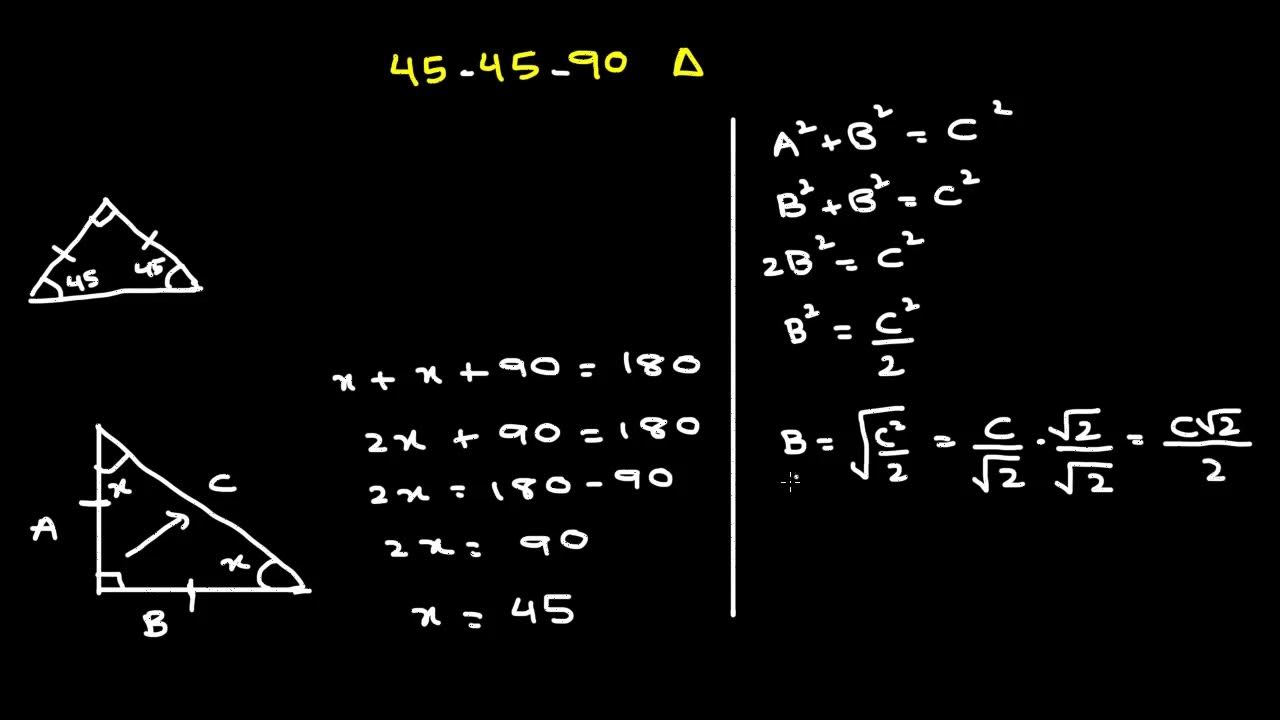 45-45-90 Δ
45 45
x + x + 90 = 180
2x + 90 = 180
2x = 180 - 90
2x = 90
x = 45
x
C
A
x
B
A² + B² = C²
B² + B² = C²
2B² = C²
B² = C²/2
B = √(C²/2) = C/√2 · √2/√2 = C√2/2